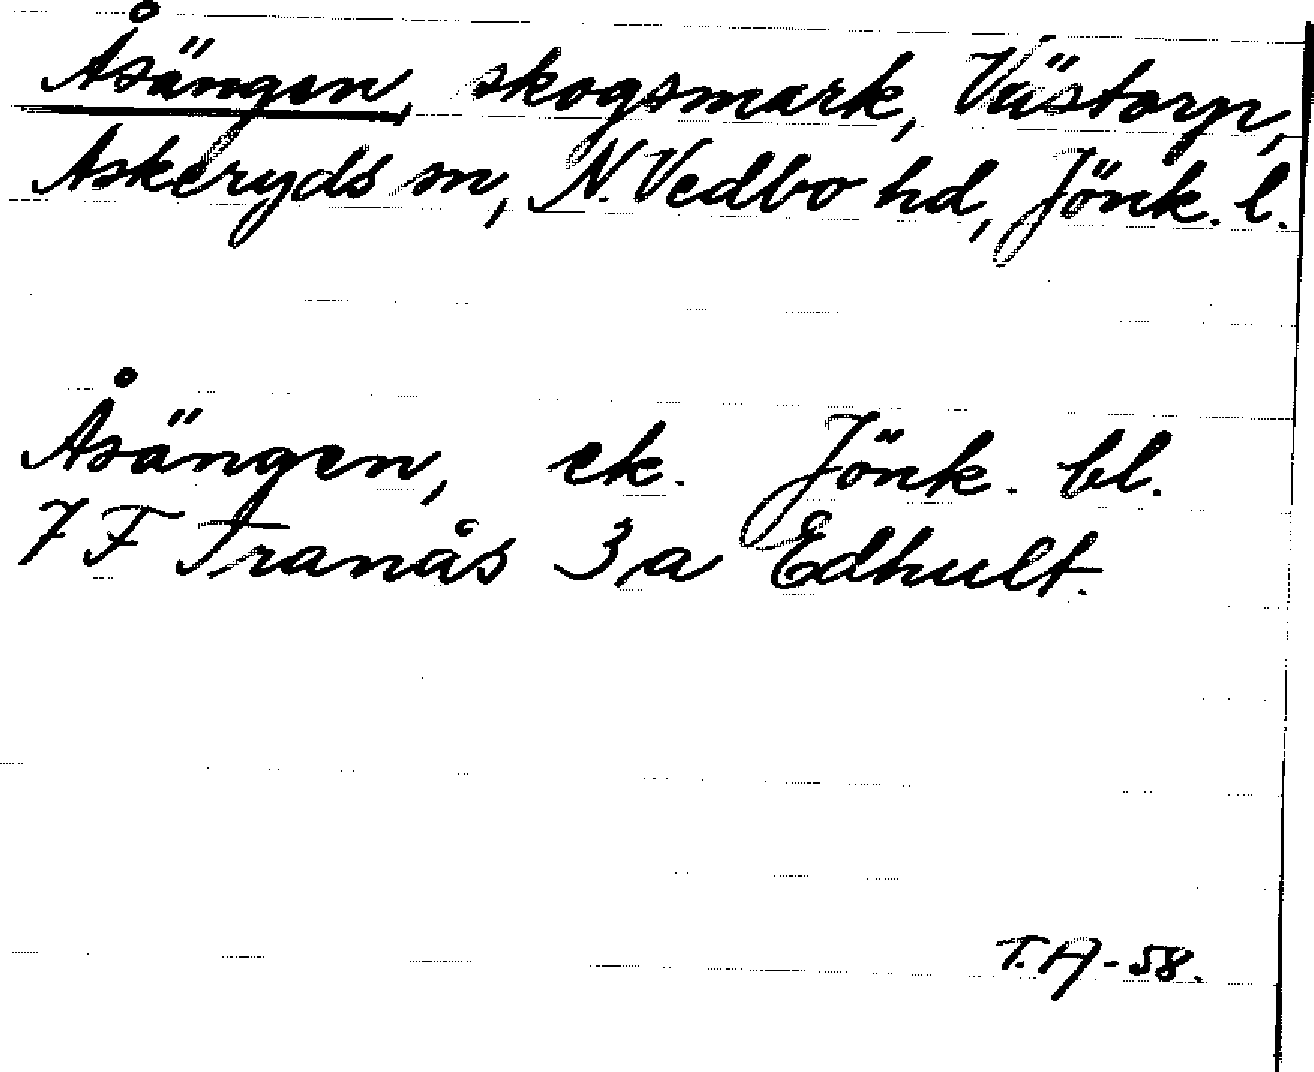 Åsängen, skogsmark, Västorp,
Askeryds sn, N. Vedbo hd, Jönk. l.
Åsängen, ek. Jönk. bl.
7 F Tranås 3 a Edhult.
T.A-58.